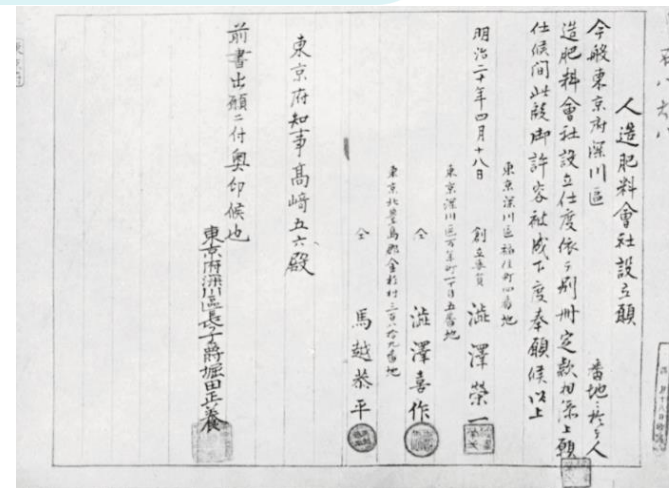 人造肥料會社設立願
今般東京府深川區　番地ニ於テ人
造肥料會社設立仕度依テ別冊定款相添上願
仕候間此段御許容被成下度奉願候以上
東京深川區福住町四番地
明治二十年四月十八日　創立委員　澁澤榮一
東京深川區万年町一丁目五番地
仝　澁澤喜作
東京北豊島郡金杉村三百八十九番地
仝　馬越恭平
東京府知事高崎五六殿
前書出願ニ付奥印候也
東京府深川區長子爵堀田正養